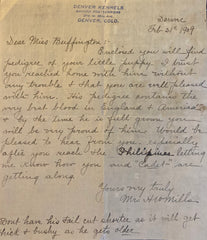 DENVER KENNELS
DENVER, COLO.
Denver
Feb 21st 1909
Dear Miss Buffington:-
Enclosed you will find
pedigree of your little puppy. I trust
you reached home with him without
any trouble & that you are well pleased
with him. His pedigree contains the
very best blood in England & America
& by the time he is full grown you
will be very proud of him. Would be
pleased to hear from you, especially
after you reach the Philipines, letting
me know how you and "Cadet" are
getting along.
Yours very truly
Mrs H C Mills
Dont have his tail cut shorter as it will get
thick & bushy as he gets older.